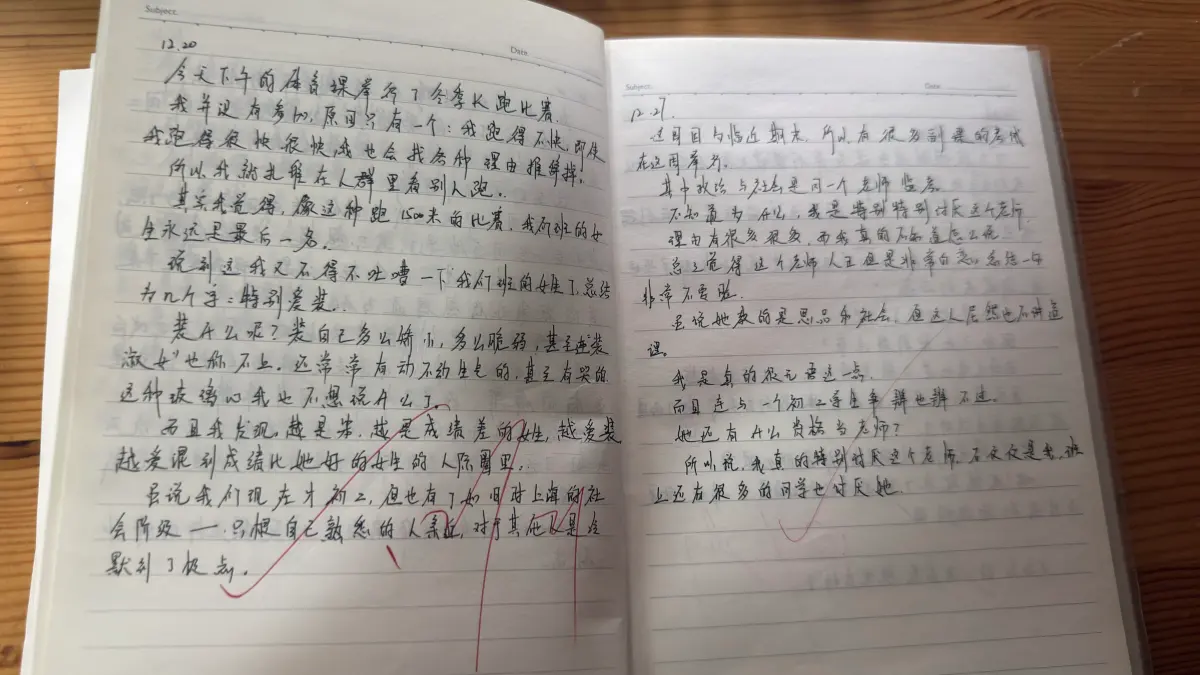 Subject:
Date:
12.20
今天下午的体育课举行了冬季长跑比赛。
我并没有参加,原因只有一个:我跑得不快,即使
我跑得很快很快,我也会找各种理由推辞掉。
所以我就扎堆在人群里看别人跑。
其实我觉得,像这种跑1500米的比赛,我们班的女
生永远是最后一名。
说到这我又不得不吐嘈一下我们班的女生了,总结
为几个字:特别爱装。
装什么呢?装自己多么娇小,多么脆弱,甚至连"装
淑女"也称不上。还常常有动不动生气的,甚至有哭的,
这种玻璃心我也不想说什么了。
而且我发现,越是笨,越是成绩差的女生,越爱装
越爱混到成绩比她好的女生的人际圈里。
虽说我们现在才初二,但也有了如旧时上海的社
会阶级——只根自己熟悉的人亲近,对于其他又是冷
默到了极点。
Subject:
Date:
12.27.
这周因为临近期末,所以有很多副课的考试
在这周举行。
其中政治与社会是同一个老师监考。
不知道为什么,我是特别特别讨厌这个老师,
理由有很多很多,而我真的不知道怎么说。
总之觉得这个老师人
非常不要脸。
虽说她教的是思品和社会,但这人居然也不讲道
理。
我是真的很无语这一点。
而且连与一个初二学生争辩也辨不过。
她还有什么资格当老师?
所以说,我真的特别讨厌这个老师,不仅仅是我,班
上还有很多的同学也讨厌她。